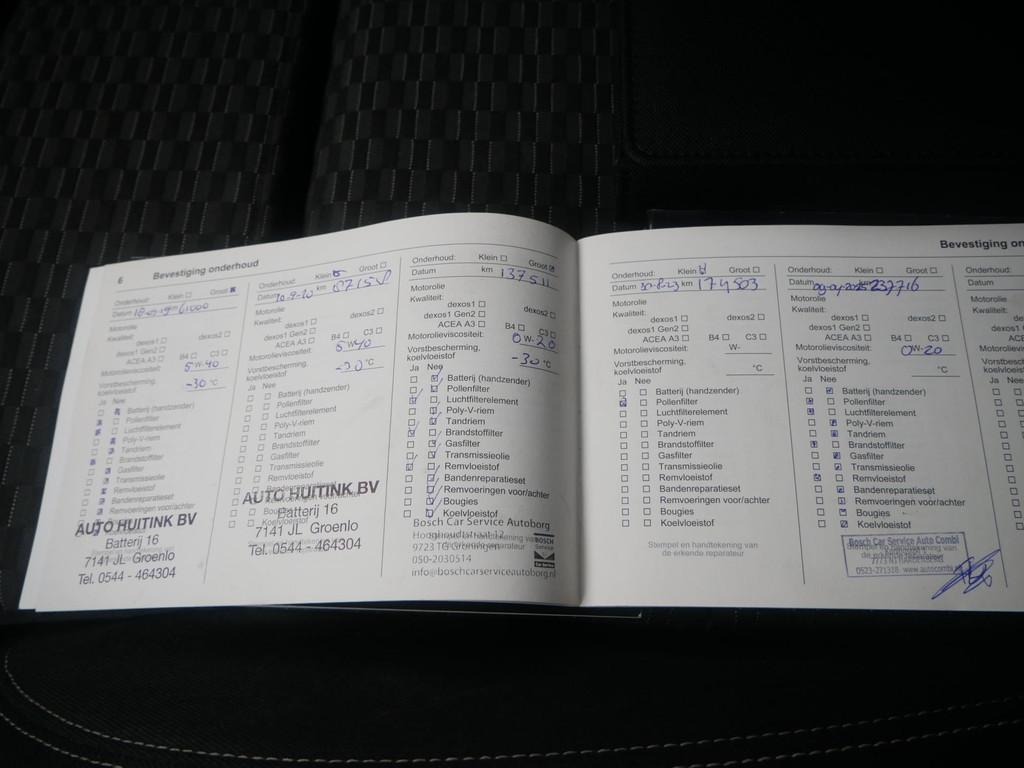 6 Bevestiging onderhoud
Onderhoud: Klein Groot
Datum km 61000
Motorolie
Kwaliteit:
dexos1 dexos2
dexos1 Gen2
ACEA A3 B4 C3
Motorolieviscositeit: 5W-40
Vorstbescherming, koelvloeistof -30 °C
Ja Nee
Batterij (handzender)
Pollenfilter
Luchtfilterelement
Poly-V-riem
Tandriem
Brandstoffilter
Gasfilter
Transmissieolie
Remvloeistof
Bandenreparatieset
Remvoeringen voor/achter
AUTO HUITINK BV
Batterij 16
7141 JL Groenlo
Tel. 0544 - 464304
Onderhoud: Klein Groot
Datum km
Motorolie
Kwaliteit:
dexos1 dexos2
dexos1 Gen2
ACEA A3 B4 C3
Motorolieviscositeit: 5W40
Vorstbescherming, koelvloeistof °C
Ja Nee
Batterij (handzender)
Pollenfilter
Luchtfilterelement
Poly-V-riem
Tandriem
Brandstoffilter
Gasfilter
Transmissieolie
Remvloeistof
Bandenreparatieset
AUTO HUITINK BV
Koelvloeistof
Batterij 16
7141 JL Groenlo
Tel. 0544 - 464304
Onderhoud: Klein Groot
Datum km 137511
Motorolie
Kwaliteit:
dexos1 dexos2
dexos1 Gen2
ACEA A3 B4 C3
Motorolieviscositeit: 0W-20
Vorstbescherming, koelvloeistof -30 °C
Ja Nee
Batterij (handzender)
Pollenfilter
Luchtfilterelement
Poly-V-riem
Tandriem
Brandstoffilter
Gasfilter
Transmissieolie
Remvloeistof
Bandenreparatieset
Remvoeringen voor/achter
Bougies
Koelvloeistof
Bosch Car Service Autoborg
9723 TG Groningen
050-2030514
info@boschcarserviceautoborg.nl
BOSCH
Service
Bevestiging on
Onderhoud: Klein Groot
Datum 30-8-23 km 174503
Motorolie
Kwaliteit:
dexos1 dexos2
dexos1 Gen2
ACEA A3 B4 C3
Motorolieviscositeit: W-
Vorstbescherming, koelvloeistof °C
Ja Nee
Batterij (handzender)
Pollenfilter
Luchtfilterelement
Poly-V-riem
Tandriem
Brandstoffilter
Gasfilter
Transmissieolie
Remvloeistof
Bandenreparatieset
Remvoeringen voor/achter
Bougies
Koelvloeistof
Stempel en handtekening van
de erkende reparateur
Onderhoud: Klein Groot
Datum 237716
Motorolie
Kwaliteit:
dexos1 dexos2
dexos1 Gen2
ACEA A3 B4 C3
Motorolieviscositeit: 0W-20
Vorstbescherming, koelvloeistof °C
Ja Nee
Batterij (handzender)
Pollenfilter
Luchtfilterelement
Poly-V-riem
Tandriem
Brandstoffilter
Gasfilter
Transmissieolie
Remvloeistof
Bandenreparatieset
Remvoeringen voor/achter
Bougies
Koelvloeistof
Bosch Car Service Auto Combi
Onderhoud:
Datum
Motorolie
Kwaliteit: